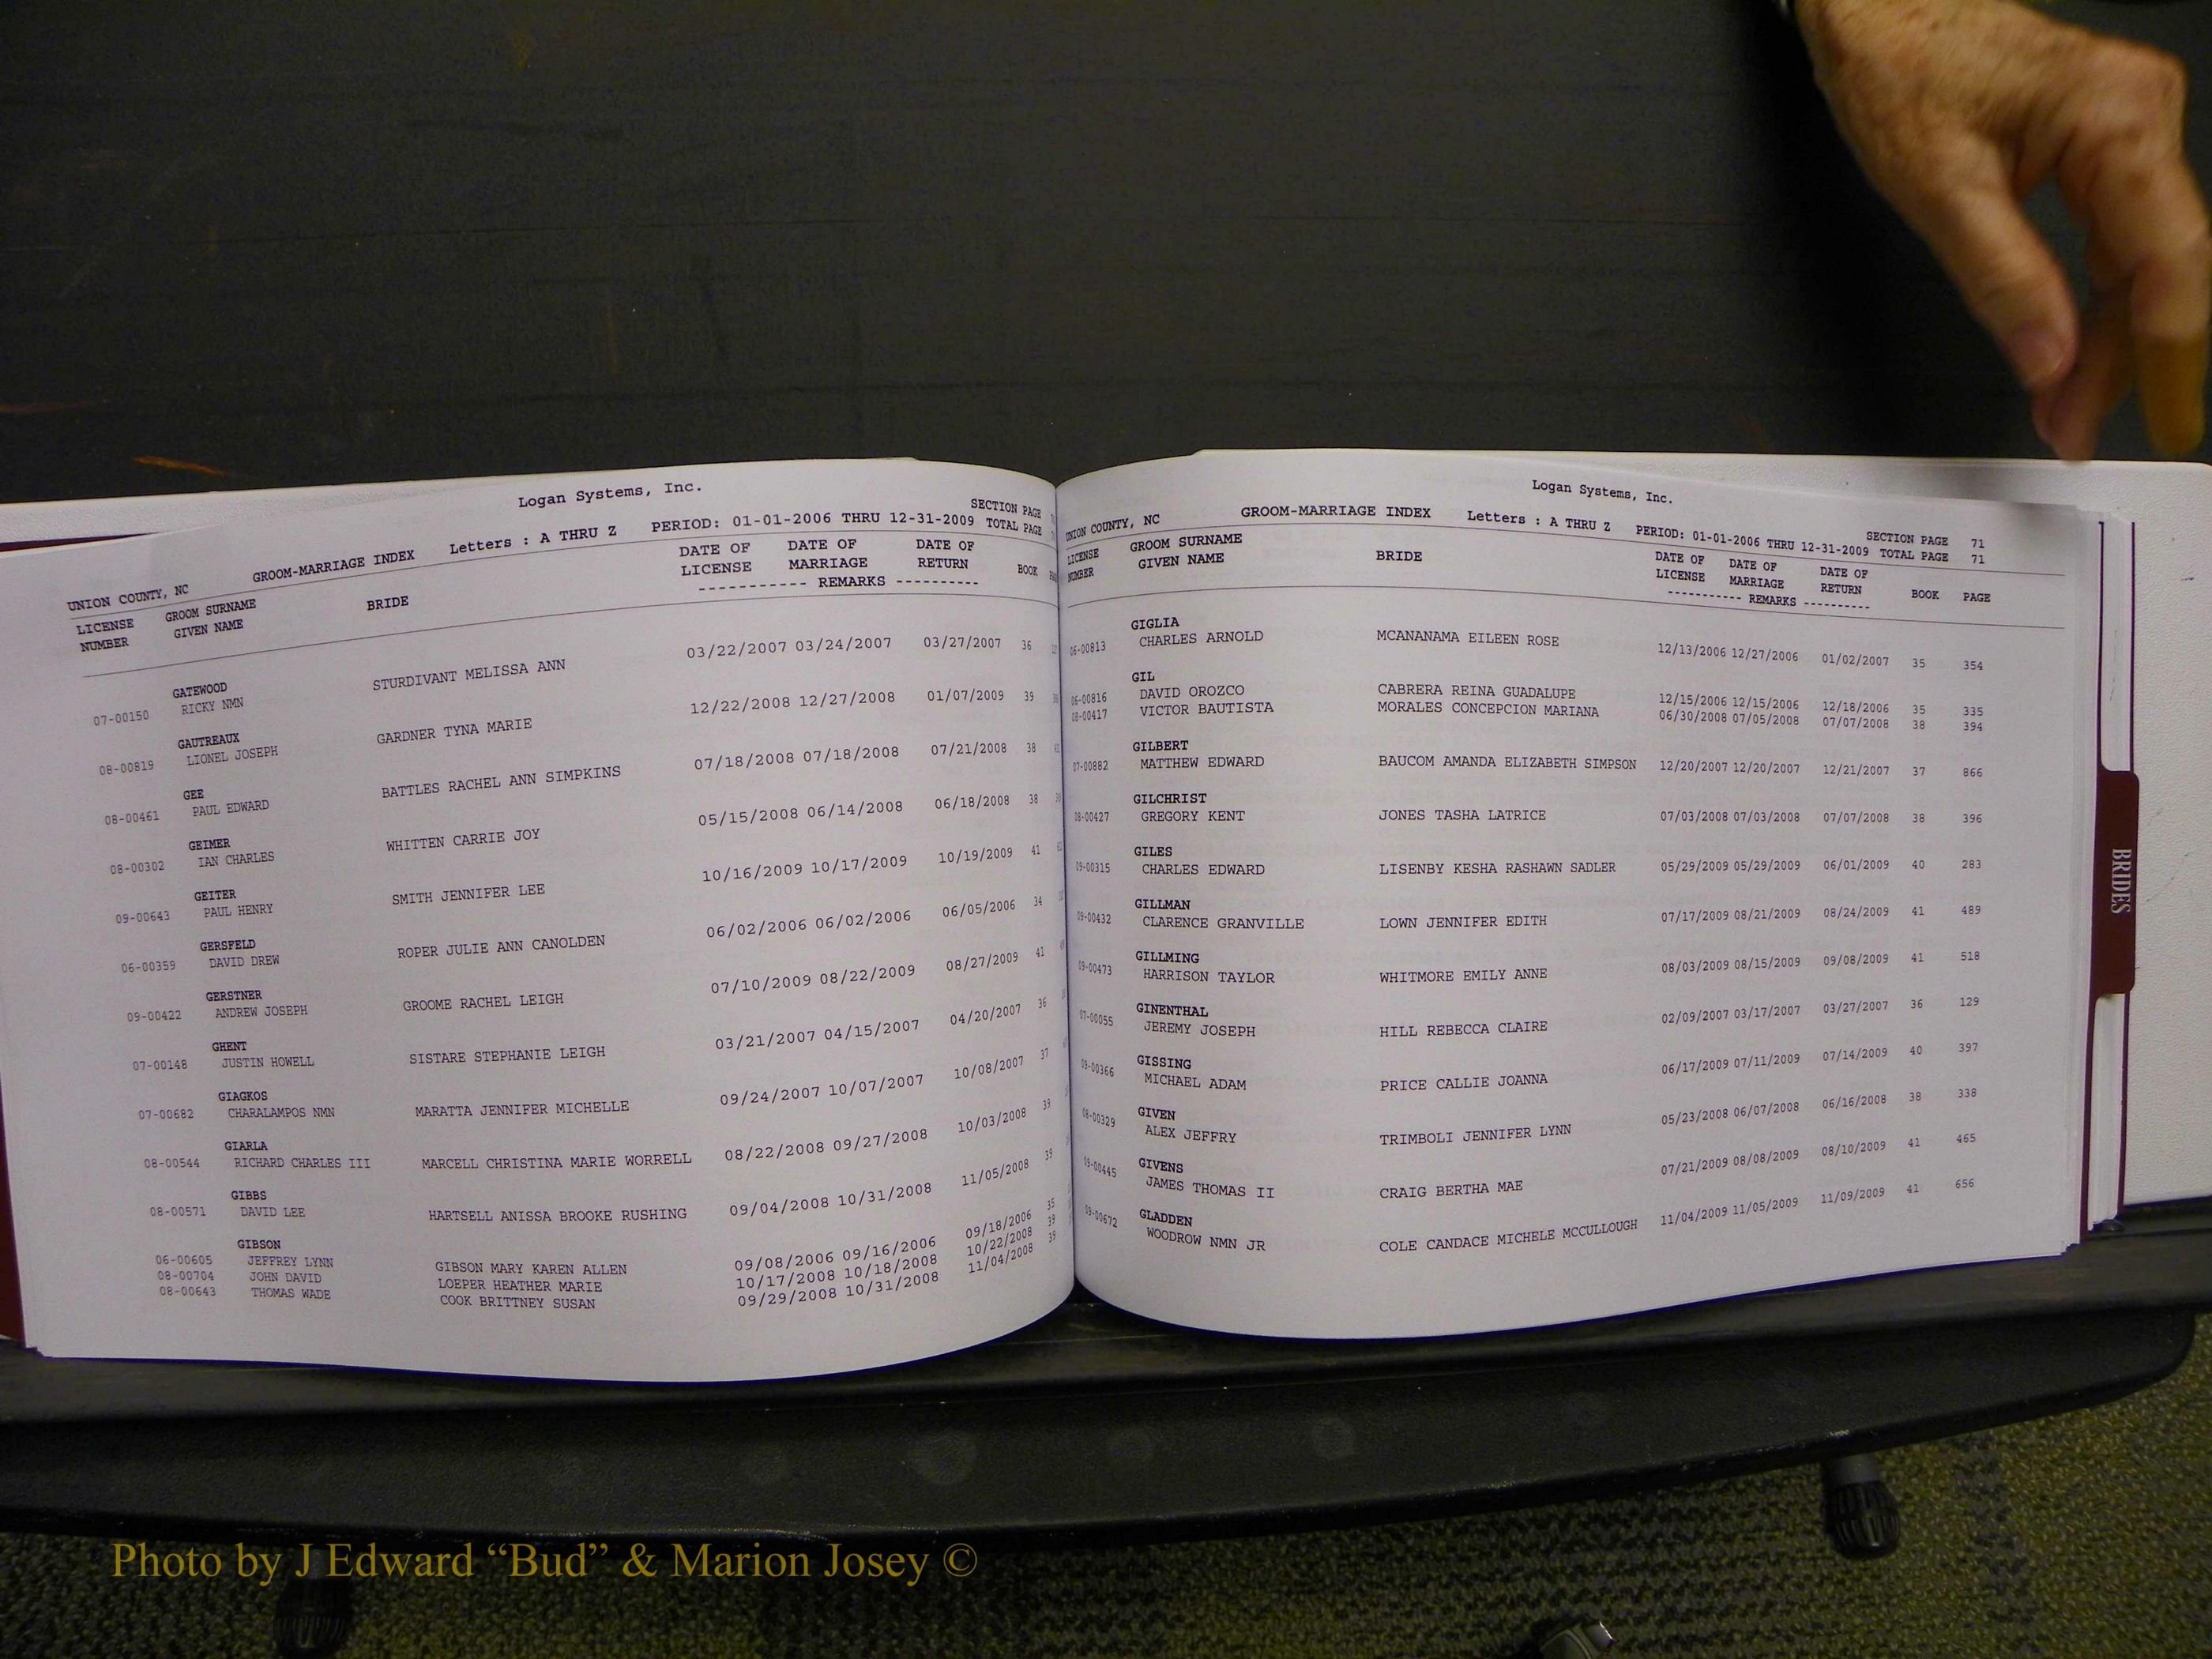 Logan Systems, Inc.
UNION COUNTY, NC GROOM-MARRIAGE INDEX Letters : A THRU Z PERIOD: 01-01-2006 THRU 12-31-2009 SECTION PAGE
TOTAL PAGE
LICENSE GROOM SURNAME BRIDE DATE OF DATE OF DATE OF
NUMBER GIVEN NAME LICENSE MARRIAGE RETURN BOOK
----------- REMARKS ----------
GATEWOOD
07-00150 RICKY NMN STURDIVANT MELISSA ANN 03/22/2007 03/24/2007 03/27/2007 36
GAUTREAUX
08-00819 LIONEL JOSEPH GARDNER TYNA MARIE 12/22/2008 12/27/2008 01/07/2009 39
GEE
08-00461 PAUL EDWARD BATTLES RACHEL ANN SIMPKINS 07/18/2008 07/18/2008 07/21/2008 38
GEIMER
08-00302 IAN CHARLES WHITTEN CARRIE JOY 05/15/2008 06/14/2008 06/18/2008 38
GEITER
09-00643 PAUL HENRY SMITH JENNIFER LEE 10/16/2009 10/17/2009 10/19/2009 41
GERSFELD
06-00359 DAVID DREW ROPER JULIE ANN CANOLDEN 06/02/2006 06/02/2006 06/05/2006 34
GERSTNER
09-00422 ANDREW JOSEPH GROOME RACHEL LEIGH 07/10/2009 08/22/2009 08/27/2009 41
GHENT
07-00148 JUSTIN HOWELL SISTARE STEPHANIE LEIGH 03/21/2007 04/15/2007 04/20/2007 36
GIAGKOS
07-00682 CHARALAMPOS NMN MARATTA JENNIFER MICHELLE 09/24/2007 10/07/2007 10/08/2007 37
GIARLA
08-00544 RICHARD CHARLES III MARCELL CHRISTINA MARIE WORRELL 08/22/2008 09/27/2008 10/03/2008 39
GIBBS
08-00571 DAVID LEE HARTSELL ANISSA BROOKE RUSHING 09/04/2008 10/31/2008 11/05/2008 39
GIBSON
06-00605 JEFFREY LYNN GIBSON MARY KAREN ALLEN 09/08/2006 09/16/2006 09/18/2006 35
08-00704 JOHN DAVID LOEPER HEATHER MARIE 10/17/2008 10/18/2008 10/22/2008 39
08-00643 THOMAS WADE COOK BRITTNEY SUSAN 09/29/2008 10/31/2008 11/04/2008 39
Logan Systems, Inc.
UNION COUNTY, NC GROOM-MARRIAGE INDEX Letters : A THRU Z PERIOD: 01-01-2006 THRU 12-31-2009 SECTION PAGE 71
TOTAL PAGE 71
LICENSE GROOM SURNAME BRIDE DATE OF DATE OF DATE OF
NUMBER GIVEN NAME LICENSE MARRIAGE RETURN BOOK PAGE
----------- REMARKS ----------
GIGLIA
06-00813 CHARLES ARNOLD MCANANAMA EILEEN ROSE 12/13/2006 12/27/2006 01/02/2007 35 354
GIL
06-00816 DAVID OROZCO CABRERA REINA GUADALUPE 12/15/2006 12/15/2006 12/18/2006 35 335
08-00417 VICTOR BAUTISTA MORALES CONCEPCION MARIANA 06/30/2008 07/05/2008 07/07/2008 38 394
GILBERT
07-00882 MATTHEW EDWARD BAUCOM AMANDA ELIZABETH SIMPSON 12/20/2007 12/20/2007 12/21/2007 37 866
GILCHRIST
08-00427 GREGORY KENT JONES TASHA LATRICE 07/03/2008 07/03/2008 07/07/2008 38 396
GILES
09-00315 CHARLES EDWARD LISENBY KESHA RASHAWN SADLER 05/29/2009 05/29/2009 06/01/2009 40 283
GILLMAN
09-00432 CLARENCE GRANVILLE LOWN JENNIFER EDITH 07/17/2009 08/21/2009 08/24/2009 41 489
GILLMING
09-00473 HARRISON TAYLOR WHITMORE EMILY ANNE 08/03/2009 08/15/2009 09/08/2009 41 518
GINENTHAL
07-00055 JEREMY JOSEPH HILL REBECCA CLAIRE 02/09/2007 03/17/2007 03/27/2007 36 129
GISSING
09-00366 MICHAEL ADAM PRICE CALLIE JOANNA 06/17/2009 07/11/2009 07/14/2009 40 397
GIVEN
08-00329 ALEX JEFFRY TRIMBOLI JENNIFER LYNN 05/23/2008 06/07/2008 06/16/2008 38 338
GIVENS
09-00445 JAMES THOMAS II CRAIG BERTHA MAE 07/21/2009 08/08/2009 08/10/2009 41 465
GLADDEN
09-00672 WOODROW NMN JR COLE CANDACE MICHELE MCCULLOUGH 11/04/2009 11/05/2009 11/09/2009 41 656
BRIDES
Photo by J Edward “Bud” & Marion Josey ©